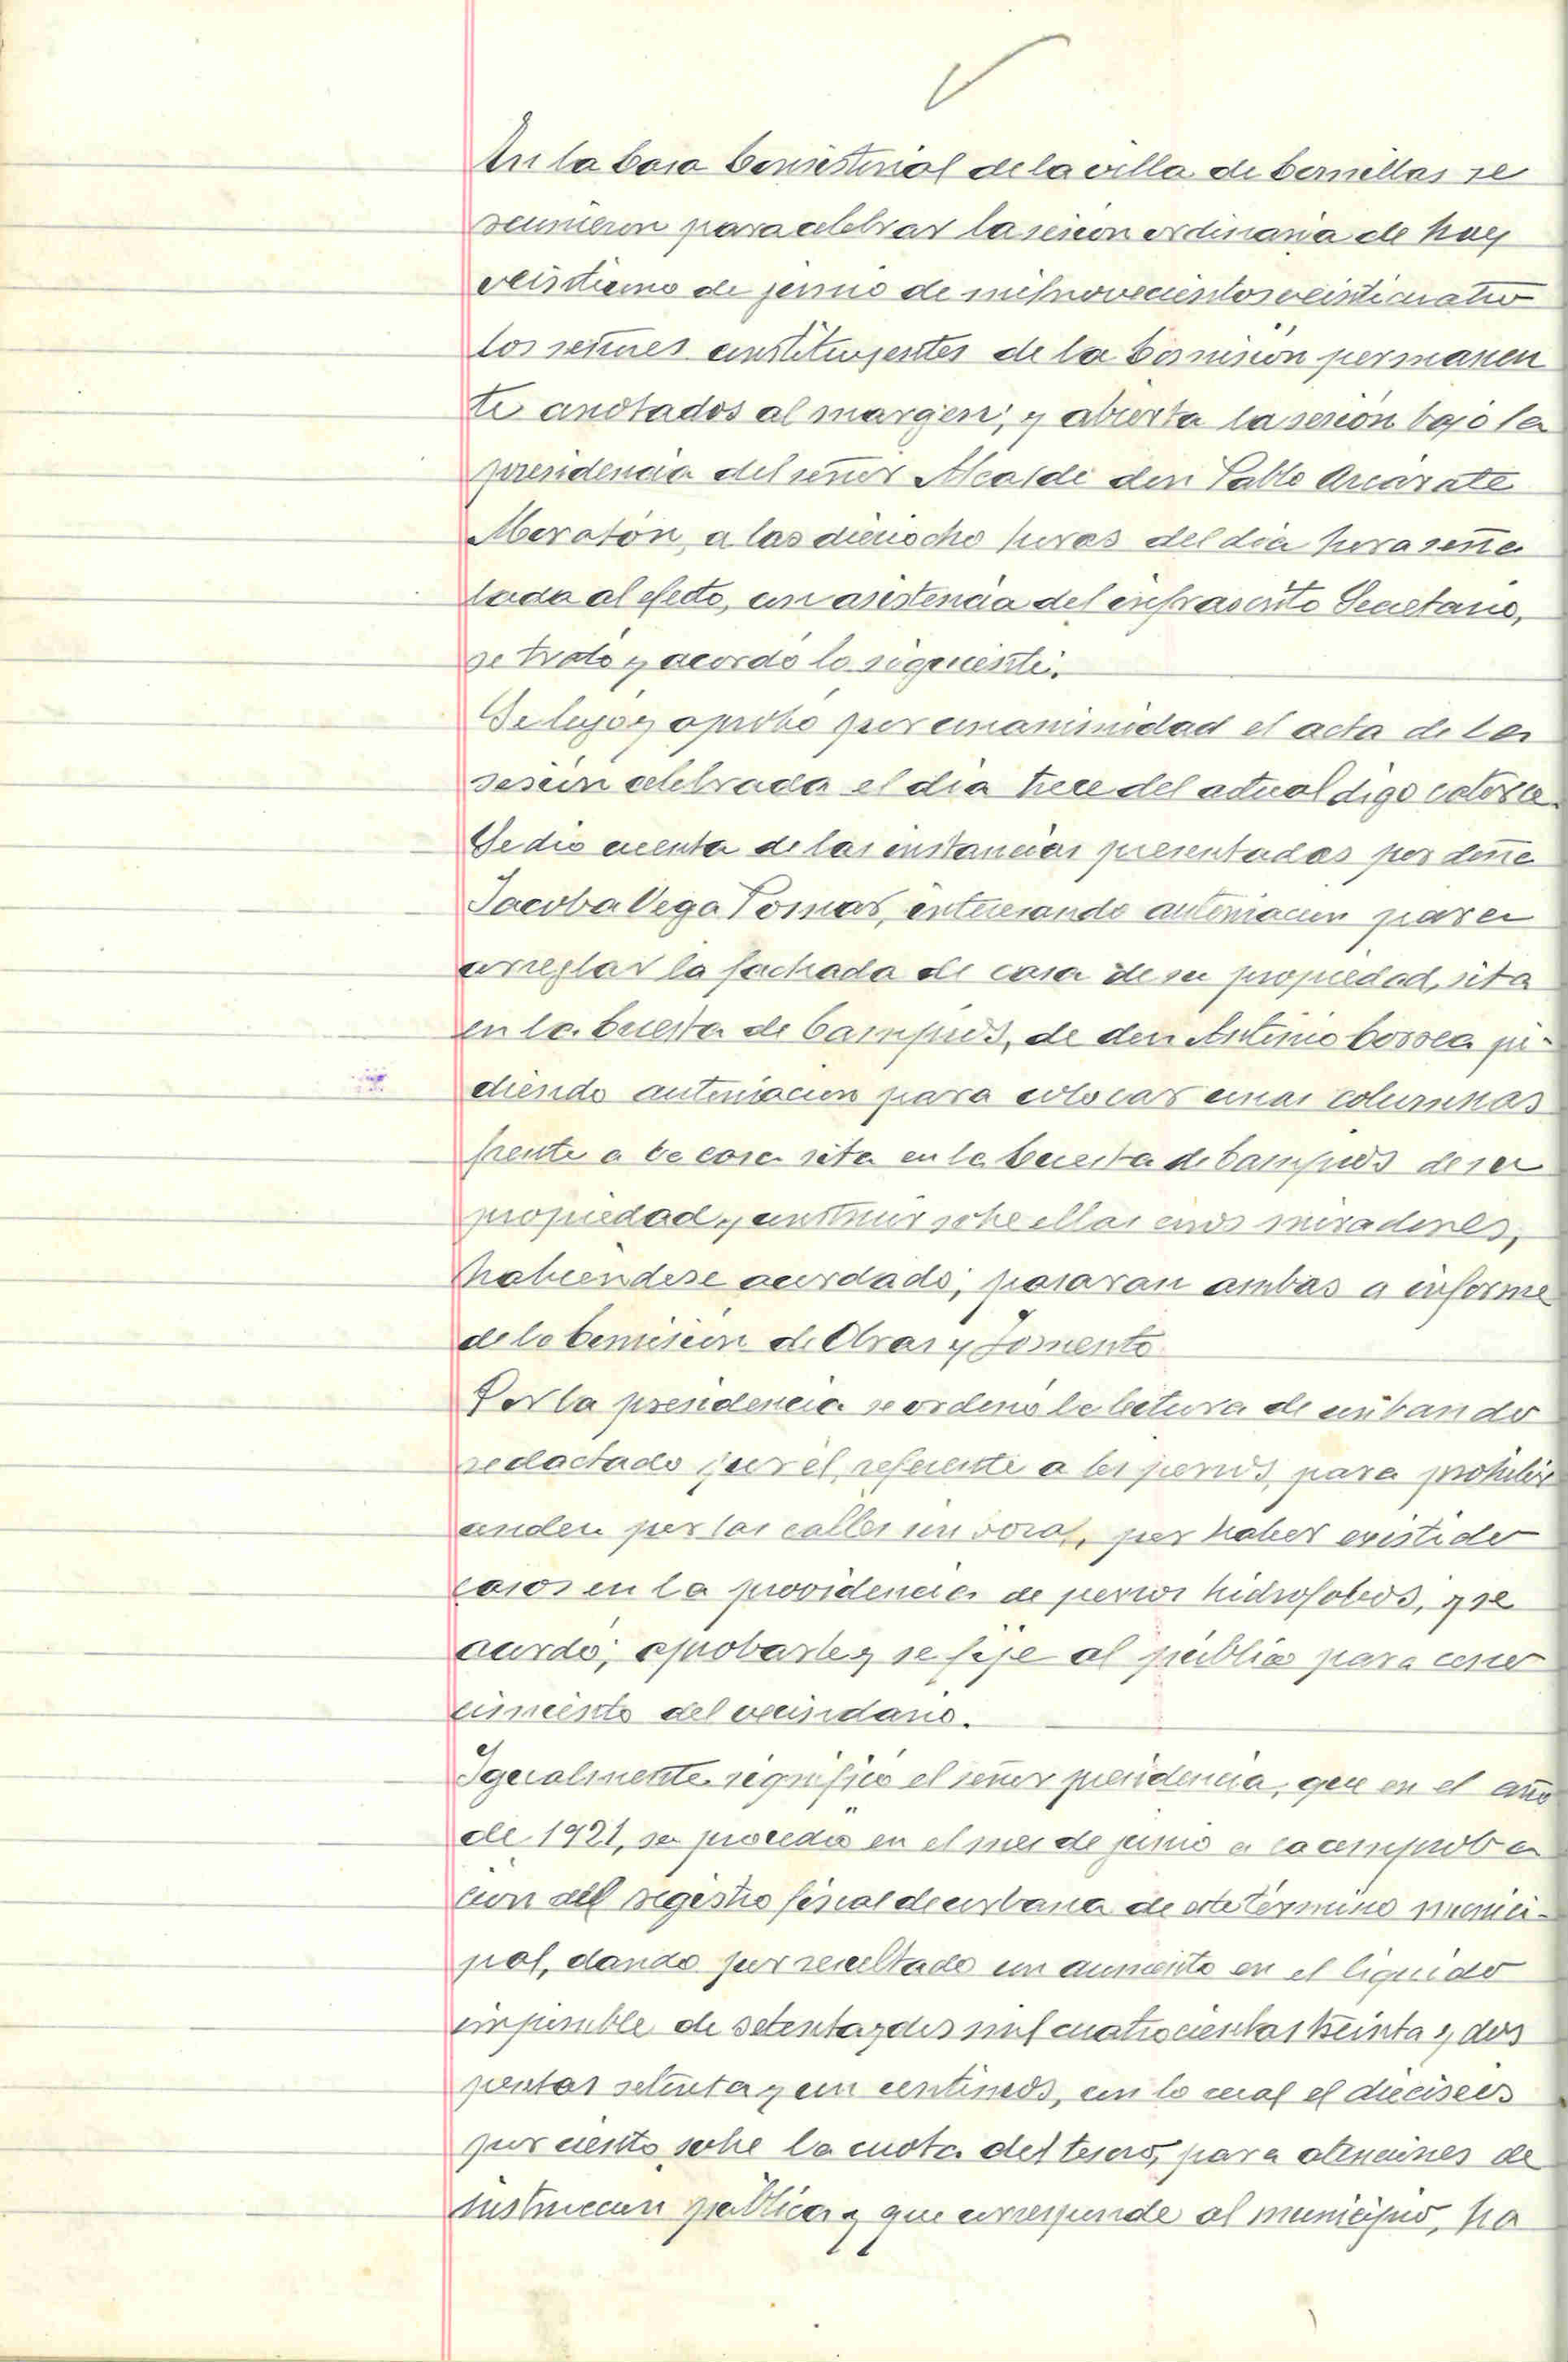 En la Casa Consistorial de la villa de Cornillas se
reunieron para celebrar la sesión ordinaria de hoy
veintiuno de junio de mil novecientos veinticuatro
los señores constituyentes de la Comisión permanen
te anotados al margen; y abierta la sesión bajo la
presidencia del señor Alcalde don Pablo Azcárate
a las dieciocho horas del día hora seña
lada al efecto, con asistencia del infrascrito Secretario,
se trató y acordó lo siguiente:
Se leyó y aprobó por unanimidad el acta de la
sesión celebrada el día trece del actual digo catorce.
Se dió cuenta de las instancias presentadas por doña
Jacoba Vega Tomas, interesando autorización para
arreglar la fachada de casa de su propiedad, sita
en la Cuesta de Campios, de don Antonio Correa pi-
diendo autorización para colocar unas columnas
frente a la casa sita en la Cuesta de Campios de su
propiedad y construir sobre ellas unos miradores,
habiéndose acordado; pasaran ambas a informe
de la Comisión de Obras y Fomento
Por la presidencia se ordenó la lectura de un bando
redactado por él, referente a los perros, para prohibir
anden por las calles sin bozal, por haber existido
casos en la providencia de perros hidrofobos, y se
acordó; aprobarle y se fije al público para cono
cimiento del vecindario.
Igualmente significó el señor presidencia, que en el año
de 1921, se procedió en el mes de junio a la comproba
cion del registro fiscal de urbana de este término munici-
pal, dando por resultado un aumento en el liquido
imponible de setenta y dos mil cuatrocientas treinta y dos
pesetas setenta y un centimos, con lo cual el dieciseis
por ciento sobre la cuota del tesoro, para atenciones de
instruccion publica y que corresponde al municipio, ha